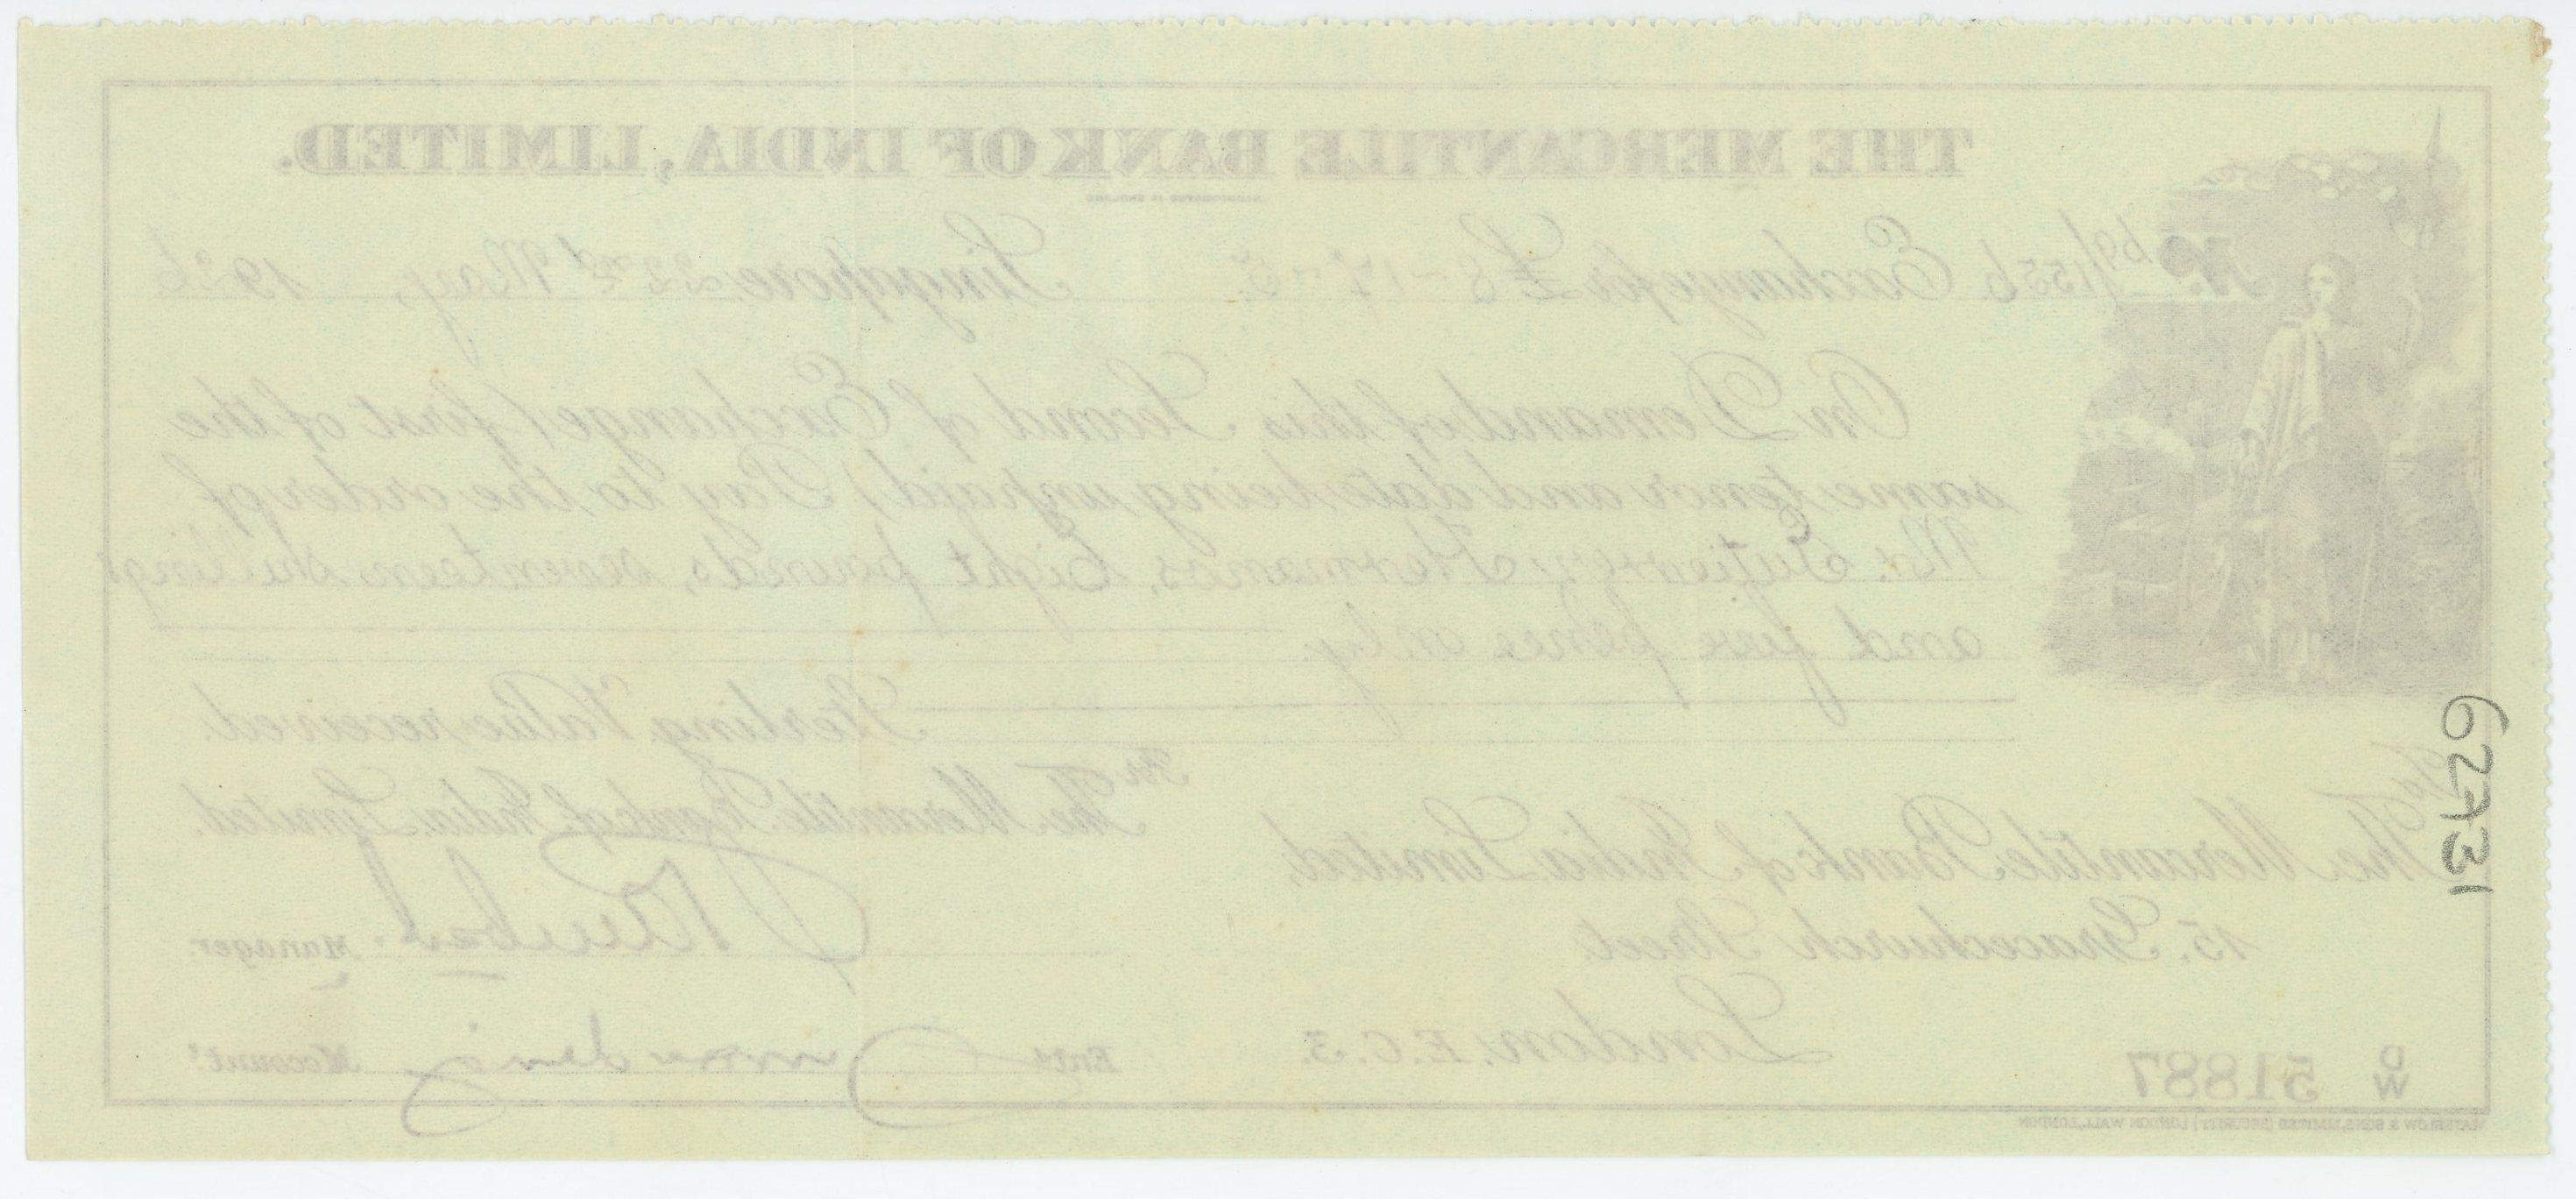 THE MERCANTILE BANK OF INDIA, LIMITED.
INCORPORATED IN ENGLAND
No. 69/1556 Exchange for £8-17-5. Singapore, 22nd May, 1926
On Demand of this Second of Exchange (first of the
same tenor and date being unpaid) Pay to the order of
Hermanos, Eight pounds, seventeen shillings
and five pence only.
Sterling Value received.
To
The Mercantile Bank of India Limited,
15, Gracechurch Street.
London, E.C.3.
For The Mercantile Bank of India Limited.
Manager.
Entd Accountt
D/W 51887
WATERLOW & SONS, LIMITED (SECURITY) LONDON WALL, LONDON
62731